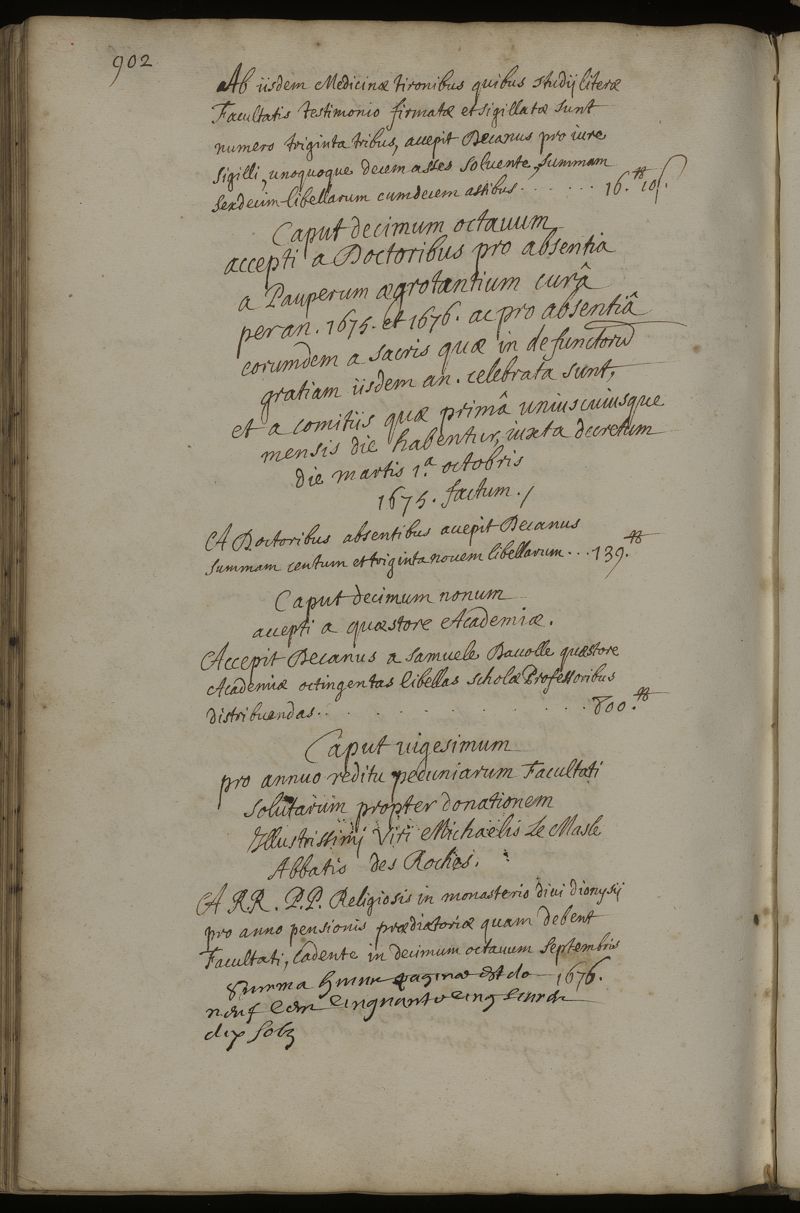 902
Ab iisdem Medicinæ tironibus quibus studij literæ
Facultatis testimonio firmatæ et sigillatæ sunt
numero triginta tribus, accepit Decanus pro iure
sigilli, unoquoque decem asses soluente, summam
sexdecim libellarum cum decem assibus . . . . . . 16.₶ 10ſ.
Caput decimum octauum
accepti a Doctoribus pro absentia
a Pauperum ægrotantium curâ
per an. 1675. et 1676. ac pro absentiâ
eorumdem a sacris quæ in defunctorū
gratiam iisdem an. celebrata sunt,
et a comitiis quæ primâ uniuscuiusque
mensis die habentur, iuxta decretum
die martis 1.ª octobris
1675. factum./
A Doctoribus absentibus accepit Decanus
summam centum et triginta nouem libellarum . . . 139.₶
Caput decimum nonum
accepti a quæstore Academiæ.
Accepit Decanus a Samuele Dacolle quæstore
Academiæ octingentas libellas scholæ Professoribus
distribuendas . . . . . . . . . . . 800.₶
Caput uigesimum
pro annuo reditu pecuniarum Facultati
solutarum propter donationem
Illustrissimj Viri Michaëlis Le Masle
Abbatis des Roches.
A R.R. P.P. Religiosis in monasterio diui dionysij
pro anno pensionis prædiatoriæ quam debent
Facultati, cadente in decimum octauum septembris
1676.
Summa huius paginæ est de
neuf cent cinquante cinq liures
dix solz